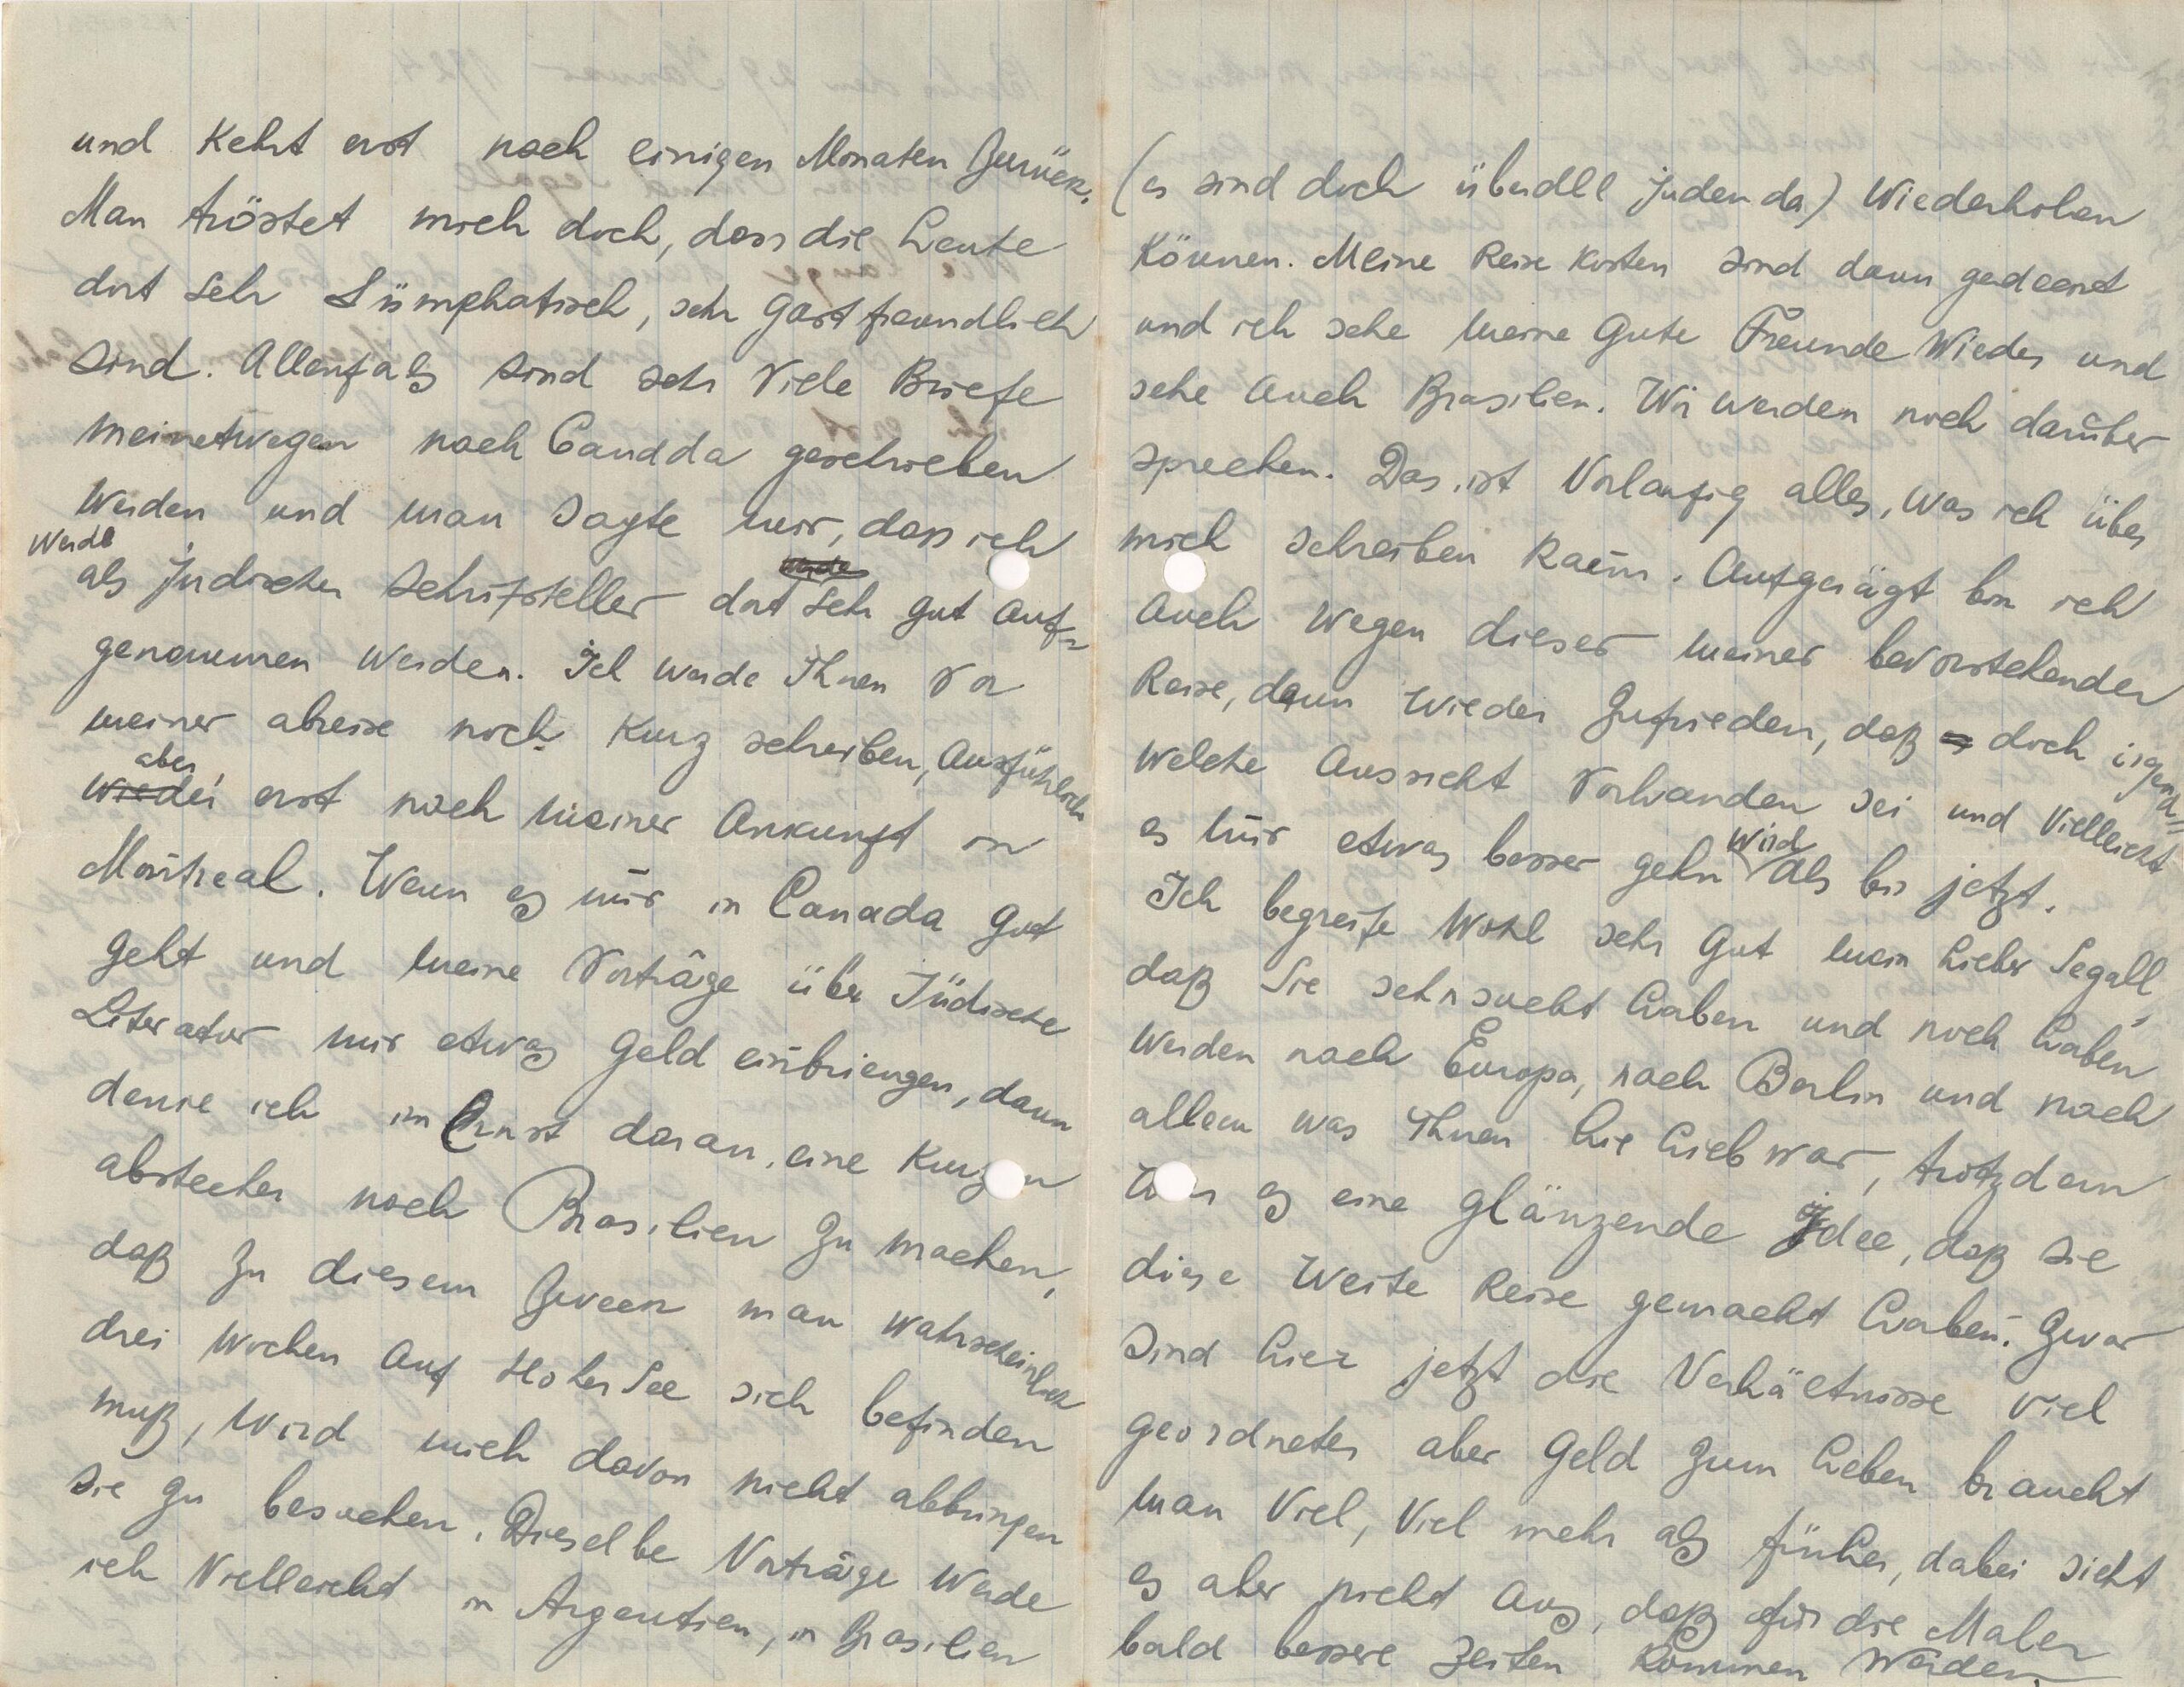 und kehrt erst nach einigen Monaten zurück.
Man tröstet mich doch, dass die Leute
dort sehr Sümphatisch, sehr gastfreundlich
sind. Allenfals sind sehr viele Briefe
meinetwegen nach Canada geschrieben
werden und man sagte mir, dass ich
werde
als jüdischer Schriftsteller dort sehr gut auf-
genommen werden. Ich werde Ihnen vor
meiner abreise noch kurz schreiben, Ausführlich
aber
wieder erst nach meiner Ankunft in
Montreal. Wenn es mir in Canada gut
geht und meine Vorträge über Jüdische
Literatur mir etwas Geld einbriengen, dann
denke ich im Ernst daran, eine kurzen
abstecher nach Brasilien zu machen,
daß zu diesem Zweck man wahrscheinlich
drei Wochen auf Hoher See sich befinden
muß, wird mich davon nicht abbringen
sie zu besuchen. Dieselbe Vorträge werde
ich Vielleicht in Argentien, in Brasilien
(es sind doch überall Juden da) Wiederholen
können. Meine Reise kosten sind dann gedeckt
und ich sehe meine Gute Freunde Wieder und
sehe auch Brasilien. Wir werden noch darüber
sprechen. Das ist Vorlaufig alles, was ich über
mich schreiben kann. Aufgerägt bin ich
auch Wegen dieser meiner bevorstehender
Reise, dann Wieder Zufrieden, daß doch irgend=
welche Aussicht Vorhanden sei und Vielleicht
es mir etwas besser gehn wird als bis jetzt.
Ich begreife Wohl sehr Gut mein Lieber Segall,
daß Sie sehnsucht haben und noch haben
werden nach Europa, nach Berlin und nach
allem was Ihnen hie Lieb war, trotzdem
War es eine glänzende Idee, daß sie
diese Weite Reise gemacht haben. Zwar
sind hier jetzt die Verhältnisse viel
geordneter aber Geld zum Leben braucht
man Viel, Viel mehr als früher, dabei sieht
es aber nicht aus, daß für die Maler
bald bessere Zeiten kommen werden.